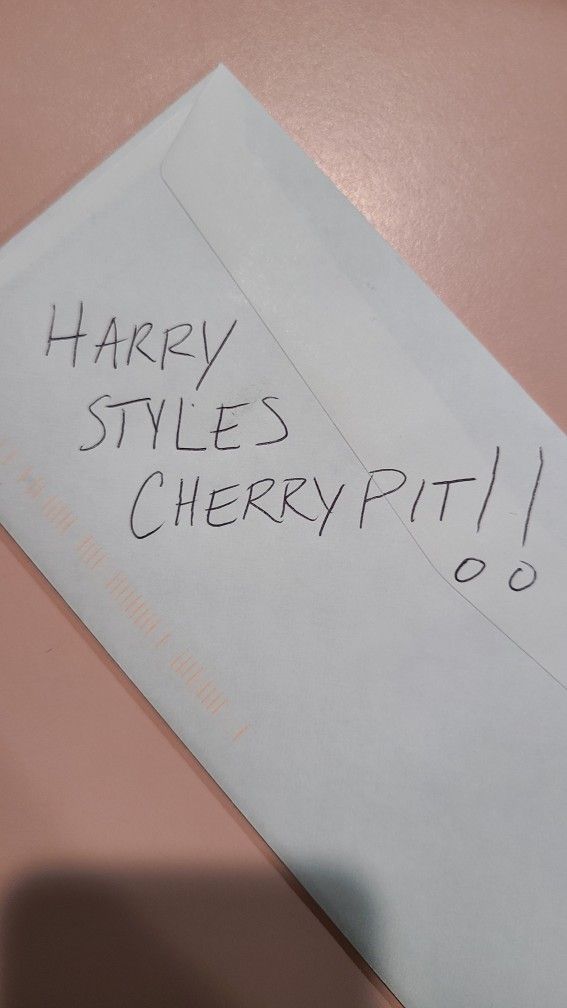 HARRY
STYLES
CHERRY PIT!!